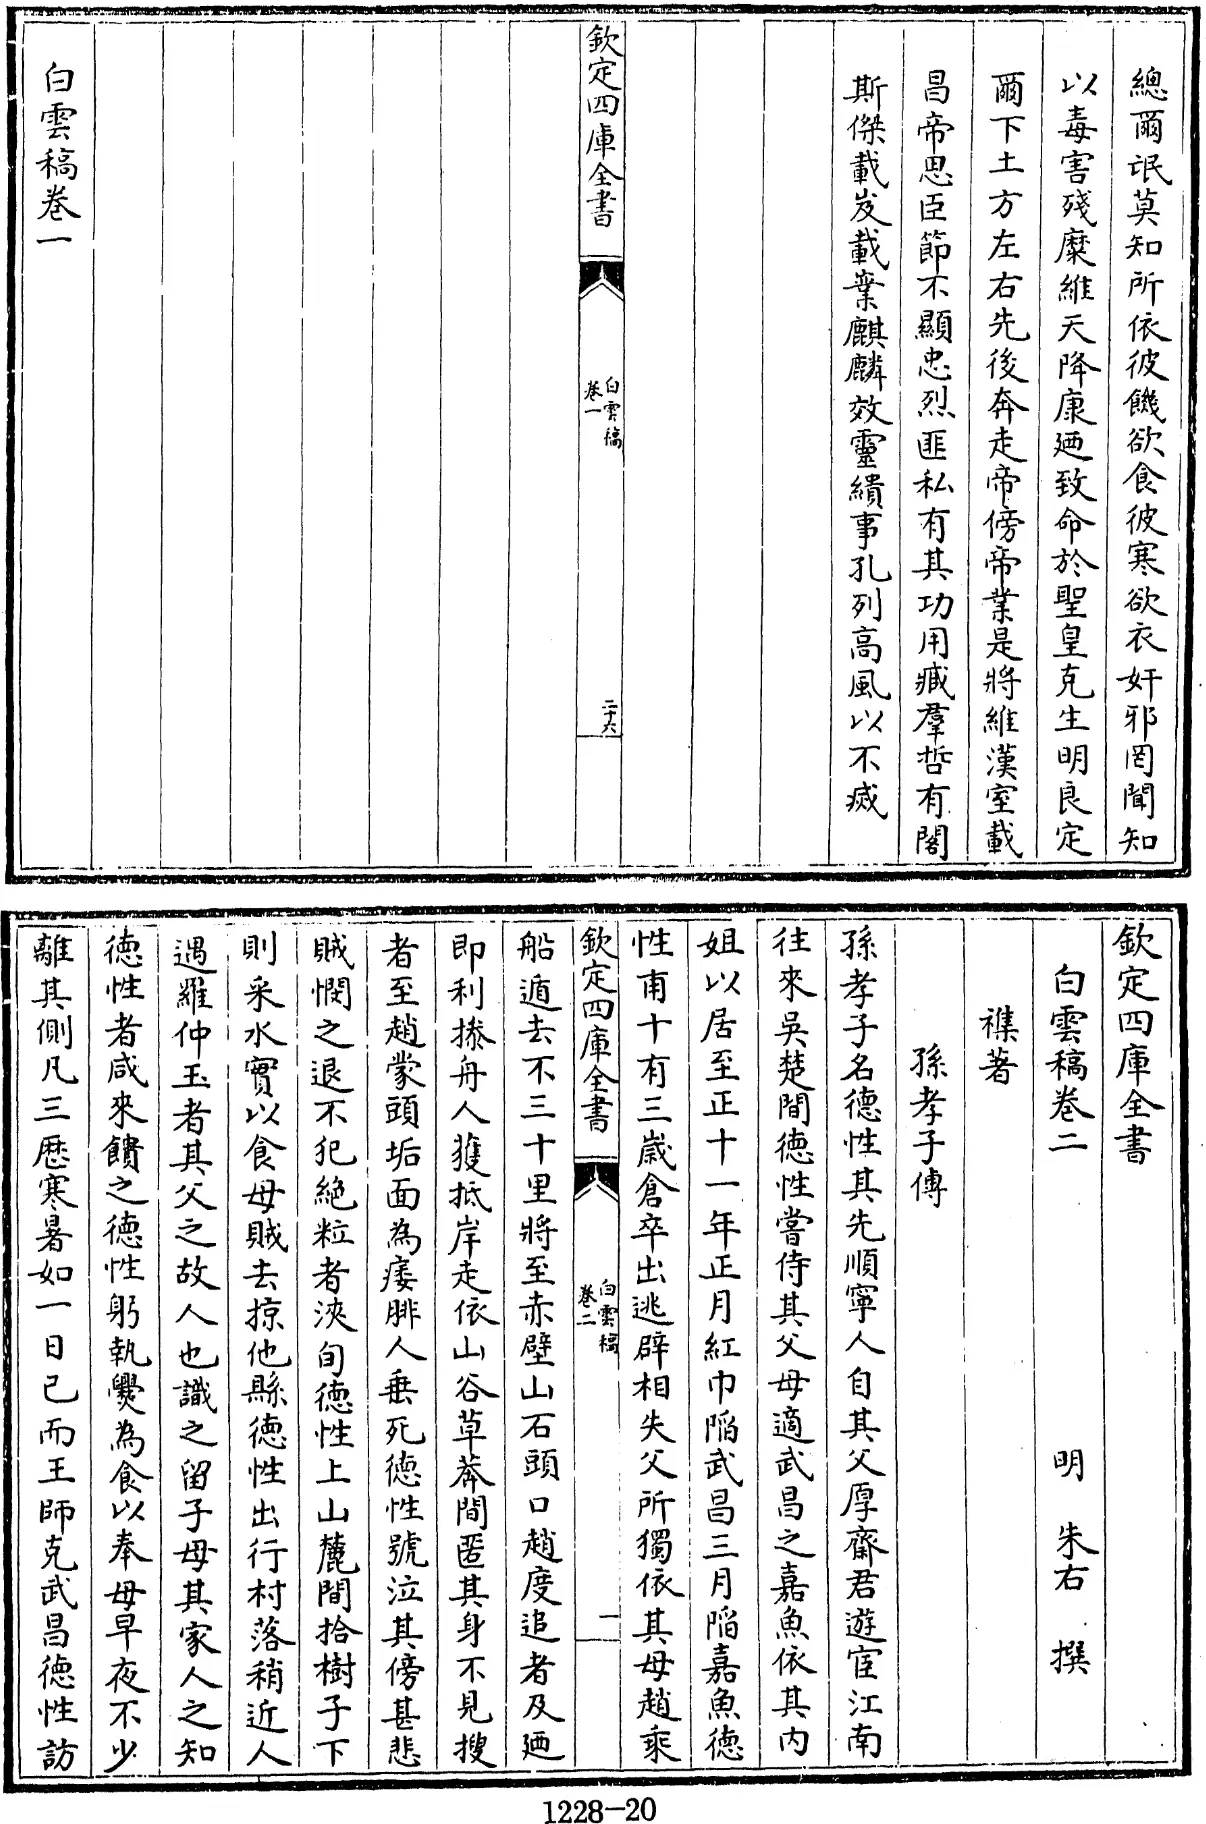 總爾氓莫知所依彼饑欲食彼寒欲衣奸邪罔聞知
以毒害殘糜維天降康廼致命於聖皇克生明良定
爾下土方左右先後奔走帝傍帝業是將維漢室載
昌帝思臣節不顯忠烈匪私有其功用臧羣哲有閣
斯傑載岌載業麒麟效靈繢事孔列高風以不烕
欽定四庫全書
白雲稿
卷一
二十六
白雲稿卷一
欽定四庫全書
白雲稿卷二
明 朱右 撰
襍著
孫孝子傳
孫孝子名德性其先順寧人自其父厚齋君遊宦江南
往來吳楚間德性嘗侍其父母適武昌之嘉魚依其内
姐以居至正十一年正月紅巾陷武昌三月陷嘉魚德
性甫十有三歲倉卒出逃辟相失父所獨依其母趙乘
欽定四庫全書
白雲稿
卷二
一
船遁去不三十里將至赤壁山石頭口趙度追者及廼
即利搽舟人獲抵岸走依山谷草莽間匿其身不見搜
者至趙蒙頭垢面為痿腓人垂死德性號泣其傍甚悲
賊憫之退不犯絶粒者浹旬德性上山麓間拾樹子下
則采水實以食母賊去掠他縣德性出行村落稍近人
遇羅仲玉者其父之故人也識之留子母其家人之知
德性者咸來饋之德性躬執㸑為食以奉母早夜不少
離其側凡三歷寒暑如一日已而王師克武昌德性訪
1228-20